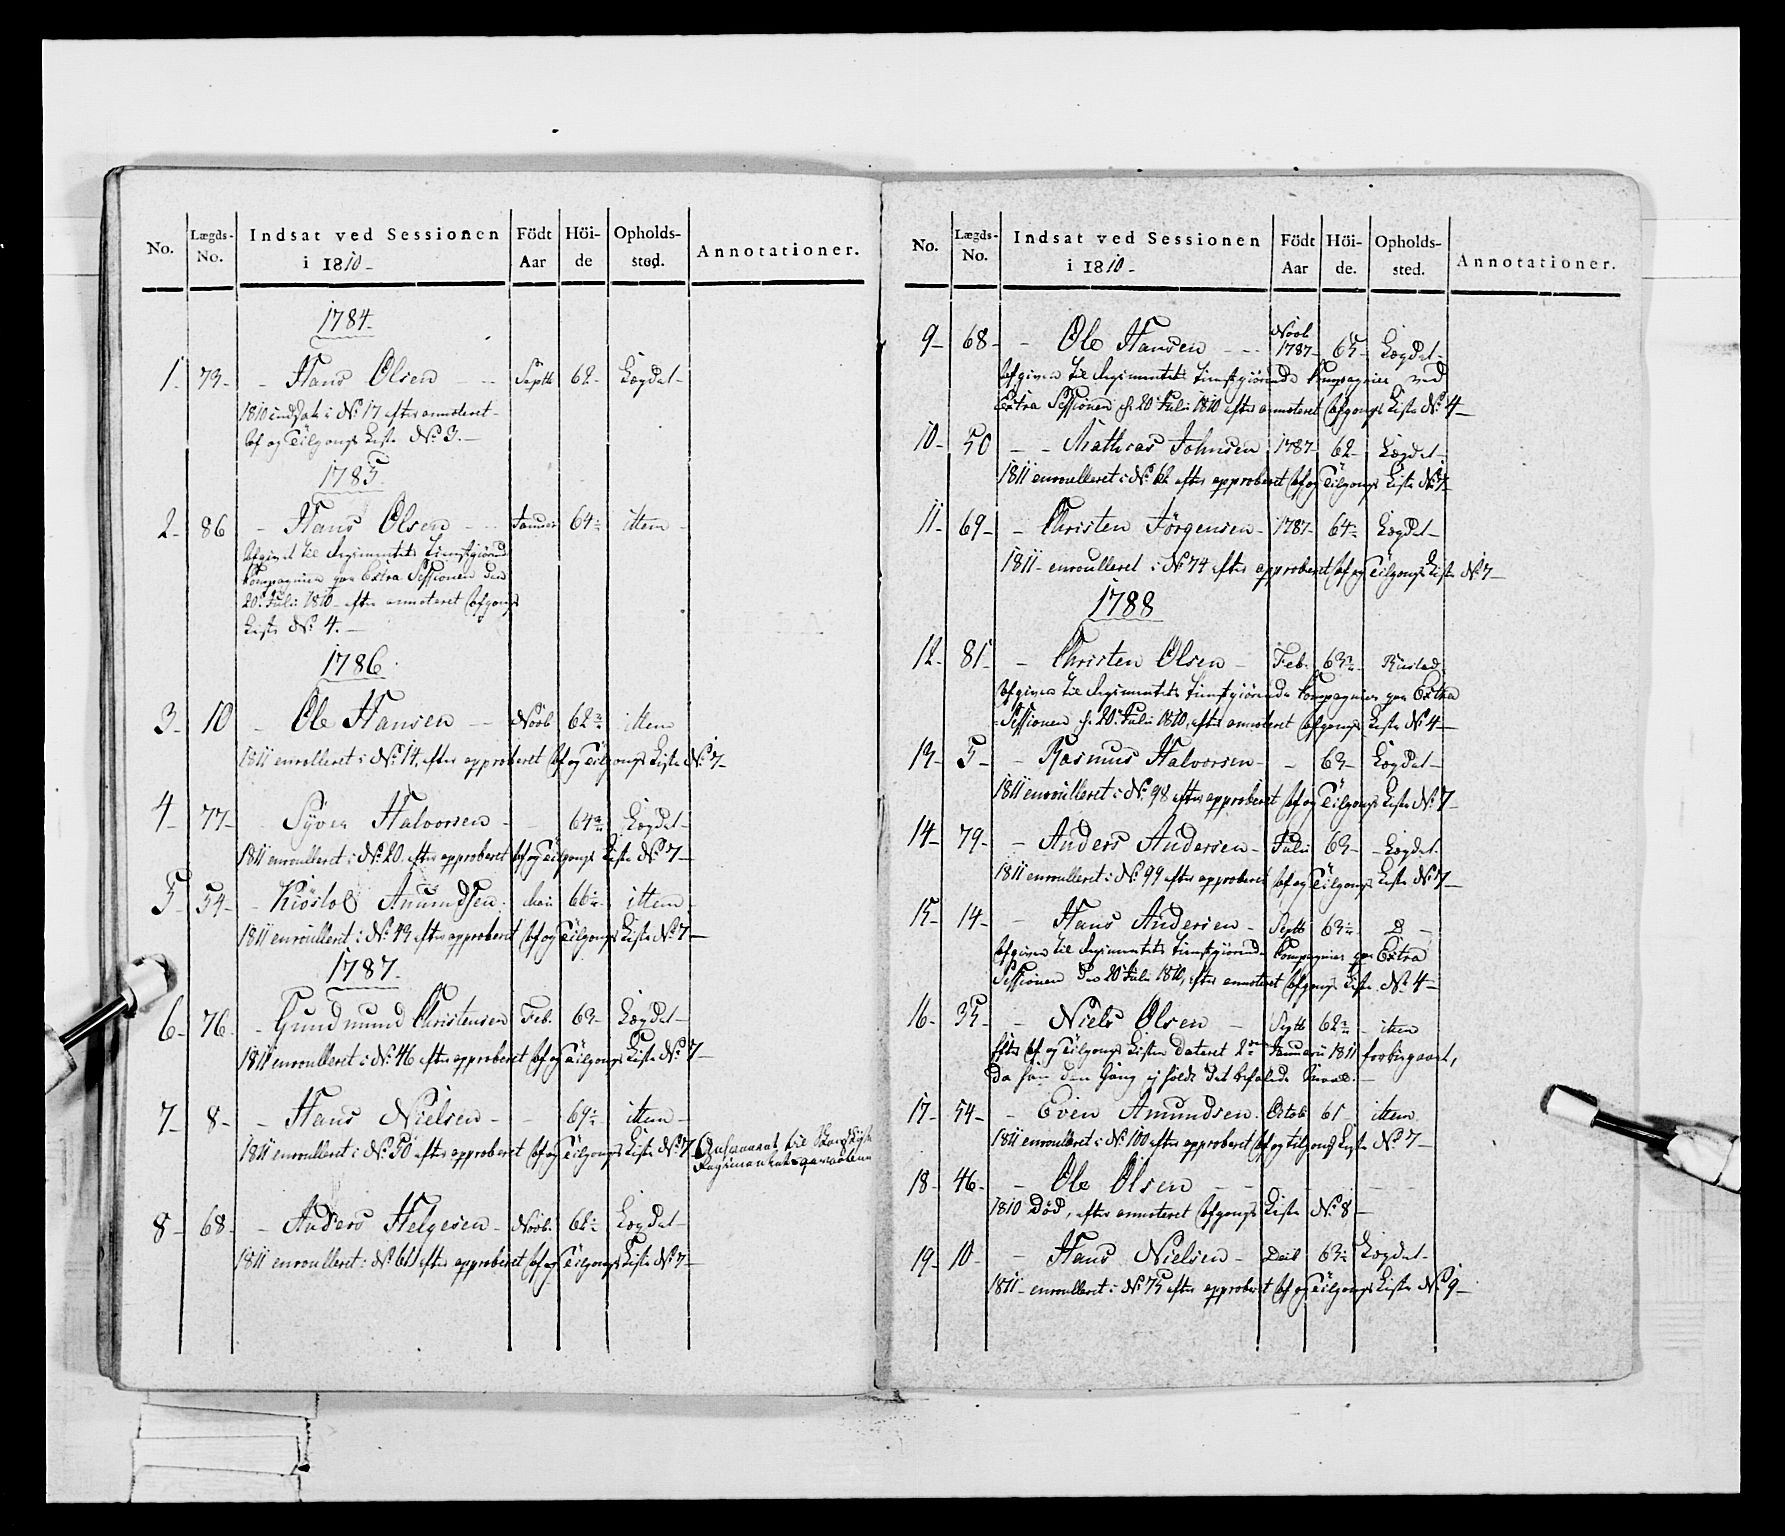 No. Lægds-No. Indsat ved Sessionen i 1810 - Födt Aar Höi-de Opholds-sted. Annotationer.
1784.
1. 73 - - Hans Olsen - - Septb 62 - Lægdet -
1810 indsat i No. 17 efter annoteret
Af og Tilgangs Liste No. 3. -
1785.
2 - 86 - Hans Olsen - - Januar 64 - ittem -
Afgivet til Regimentets tienstgiörende
Compagnier paa Extra Sessionen den
20de Julii 1810 - efter annoteret Afgangs
Liste No. 4. -
1786.
3 - 10 - Ole Hansen - - Novb. 62 ittem
1811 enroulleret i No. 14, efter approberet Af og Tilgangs Liste No. 7 -
4 - 77 - - Syver Halvorsen - 64 Lægdet -
1811 enroulleret i No. 20. efter approberet Af og Tilgangs Liste No. 7 -
5 - 54 - - Kiöstol Amundsen. Mai ittem -
1811 enroulleret i No. 43 efter approberet Af og Tilgangs Liste No. 7 -
1787.
6 - 76 - - Gundmund Christensen Feb. 63 - Lægdet -
1811 enroulleret i No. 46 efter approberet Af og Tilgangs Liste No. 7 -
7 - 8 - - Hans Nielsen - - ittem -
1811 enroulleret i No. 50 efter approberet Af og Tilgangs Liste No. 7
til
Regimentets
8 - 68 - - Anders Helgesen - Novb. 62 Lægdet -
1811 enroulleret i No. 61 efter approberet Af og Tilgangs Liste No. 7 -
No. Lægds-No. Indsat ved Sessionen i 1810 - Födt Aar Höi-de. Opholds-sted. Annotationer.
9 - 68 - - Ole Hansen - - Novb. 1787 - 65 - Lægdet -
Afgiven til Regimentets tienstgiörende Compagnier ved
Extra Sessionen d. 20 Julii 1810 efter annoteret Afgangs Liste No. 4 -
10 - 50 - - Mathias Johnsen 1787 - 62 - Lægdet -
1811 enroulleret i No. 62 efter approberet Af og Tilgangs Liste No. 7 -
11 - 69 - - Christen Jörgensen - 1787 - 64 - Lægdet -
1811 - enroulleret i No. 74 efter approberet Af og Tilgangs Liste No. 7 -
1788
12 - 81 - - Christen Olsen - Feb. 63 Rustad
Afgiven til Regimentets tienstgiörende Compagnier paa Extra
Sessionen d. 20de Julii 1810, efter annoteret Afgangs Liste No. 4 -
13 - 5 - - Rasmus Halvorsen - - 63 - Lægdet -
1811 enroulleret i No. 98 efter approberet Af og Tilgangs Liste No. 7 -
14 - 79 - - Anders Andersen - Julii 63 - - Lægdet
1811 enroulleret i No. 99 efter approberet Af og Tilgangs Liste No. 7 -
15 - 14 - - Hans Andersen - Septb 63
Afgiven til Regimentets tienstgiörende Compagnier paa Extra
Sessionen den 20de Julii 1810, efter annoteret Afgangs Liste No. 4 -
16 - 35 - - Niels Olsen - Septb 62 - ittem
Efter Af og Tilgangs Listen dateret 2den Januarii 1811 forbigaaet,
da han den Gang ej holdt det befalede Maal. -
17 - 54 - - Even Amundsen. Octob 61 ittem
1811 enroulleret i No. 100 efter approberet Af og tilgangs Liste No. 7 -
18 - 46 - - Ole Olsen - - - - -
1810 Död, efter annoteret Afgangs Liste No. 8 -
19 - 10 - - Hans Nielsen - Decb 63 Lægdet -
1811 - enroulleret i No. 75 efter approberet Af og Tilgangs Liste No. 9 -